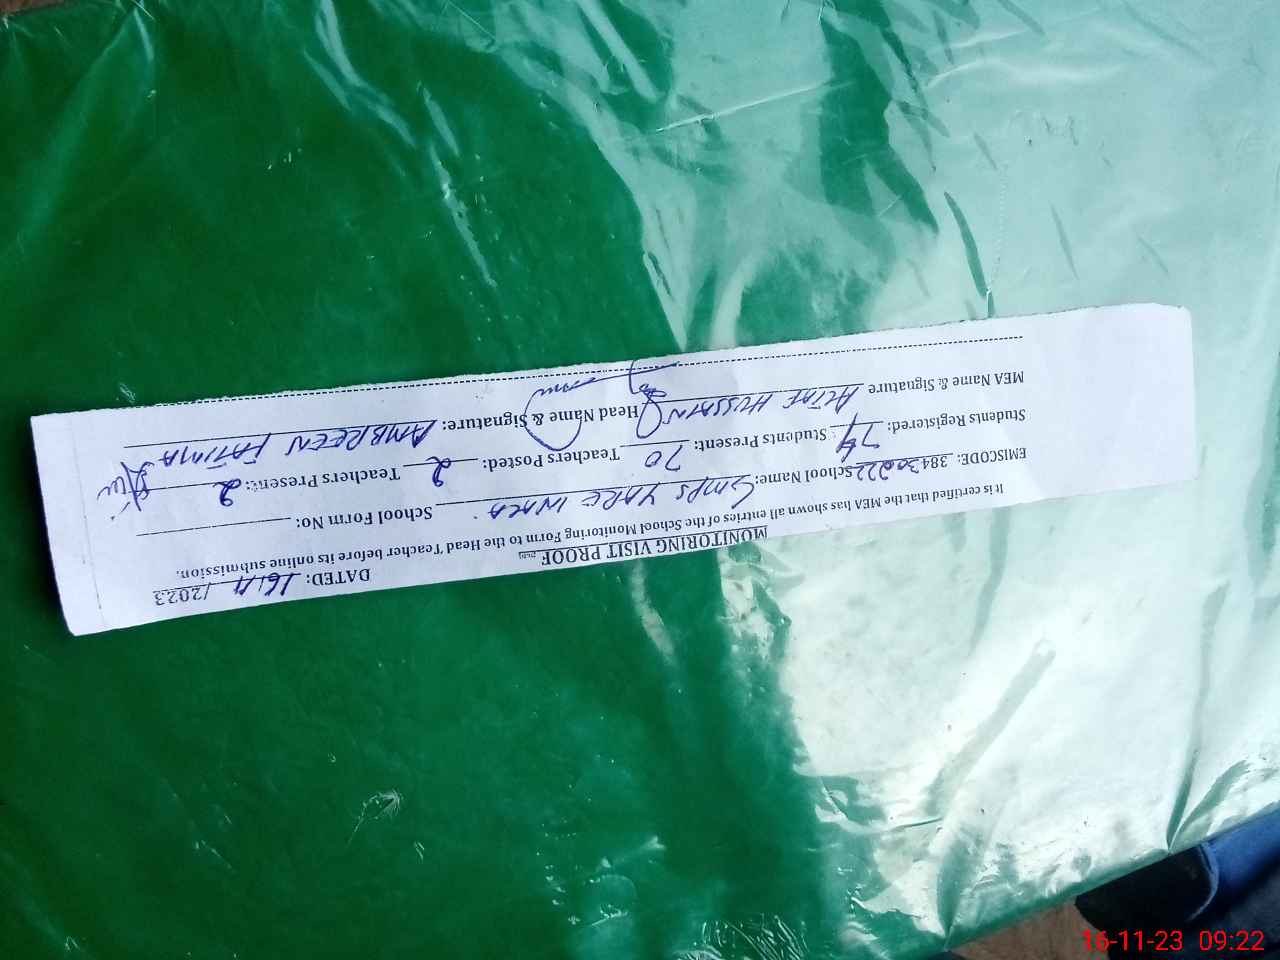 MONITORING VISIT PROOF
DATED: 16/11/2023
It is certified that the MEA has shown all entries of the School Monitoring Form to the Head Teacher before its online submission.
EMISCODE: 38430222 School Name: GMPS School Form No:
Students Registered: 74 Students Present: 70 Teachers Posted: 2 Teachers Present: 2
MEA Name & Signature HUSSAIN Head Name & Signature: AMBREEN FATIMA
16-11-23 09:22